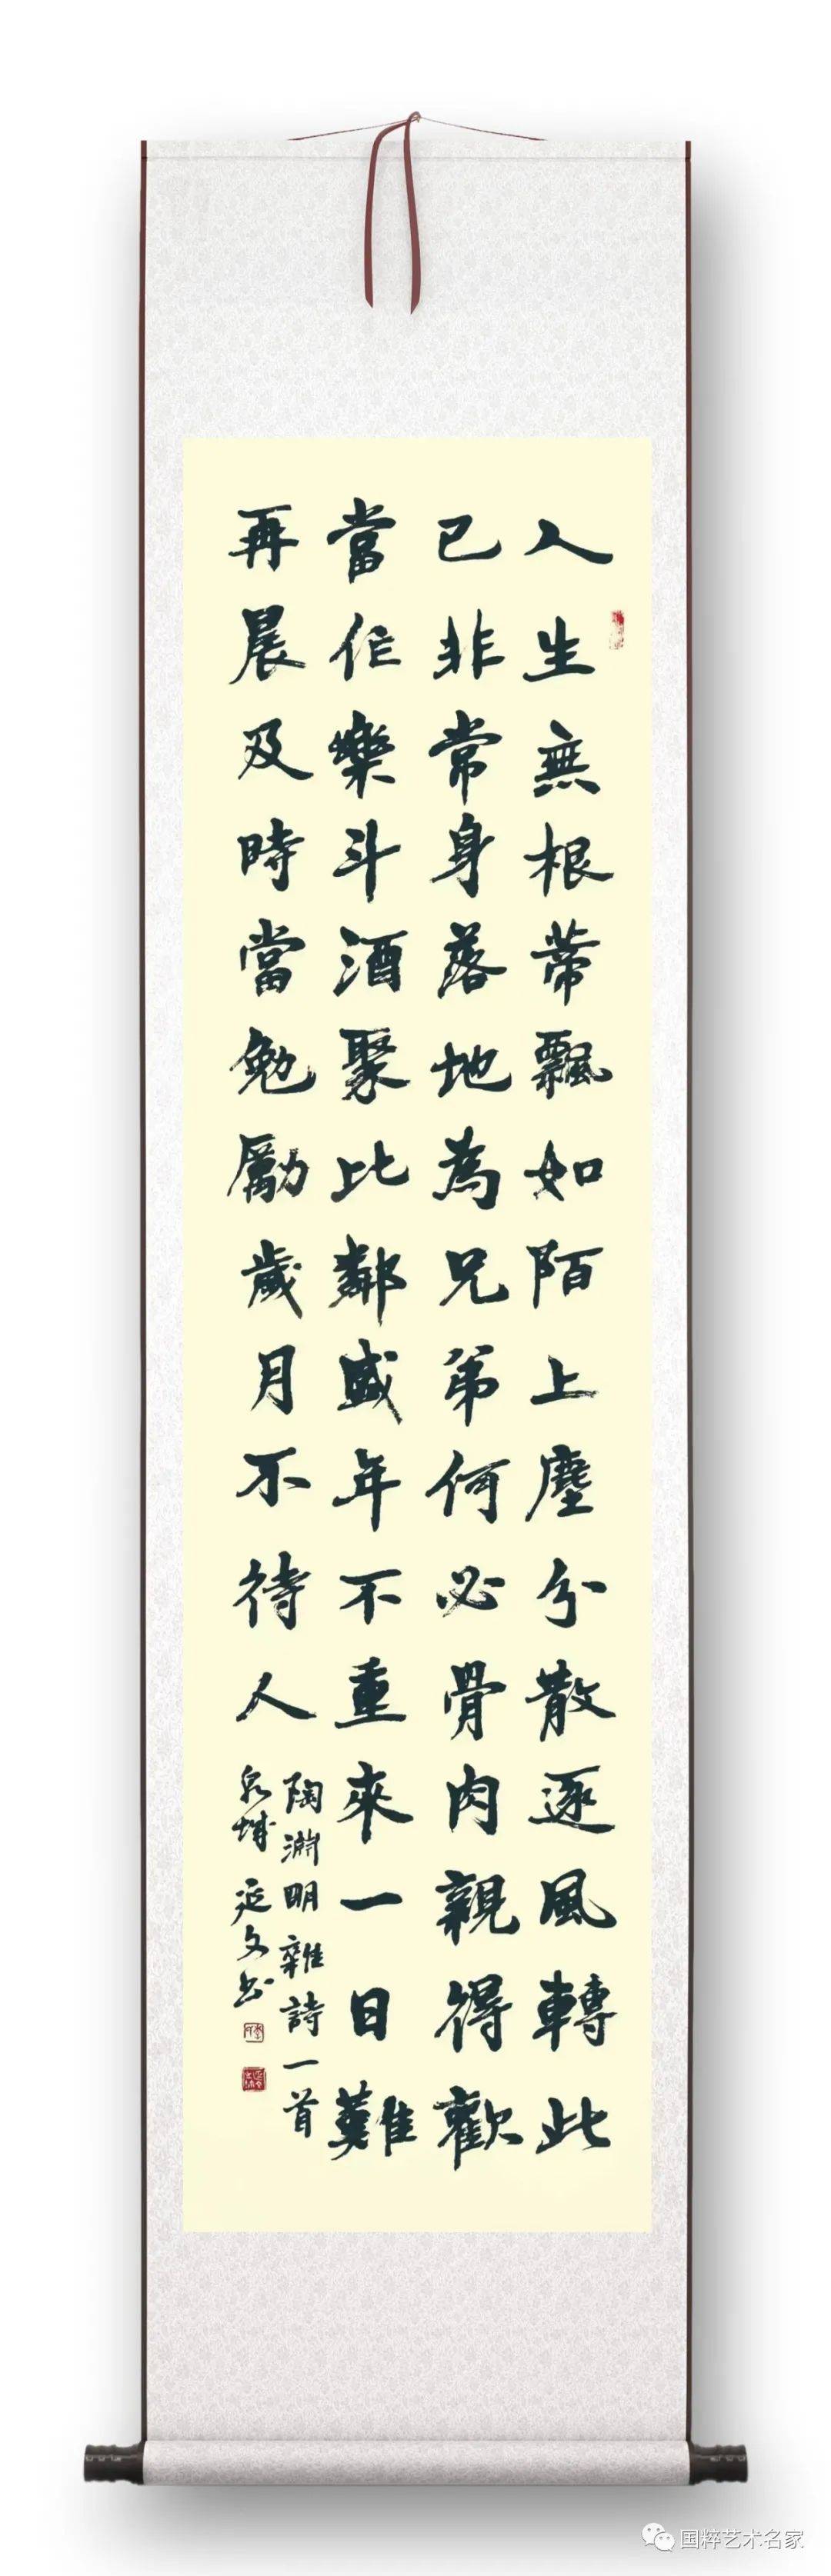 人生無根蒂飄如陌上塵分散逐風轉此
已非常身落地為兄弟何必骨肉親得歡
當作樂斗酒聚比鄰盛年不重來一日難
再晨及時當勉勵歲月不待人
陶淵明雜詩一首
泉城延文书
国粹艺术名家